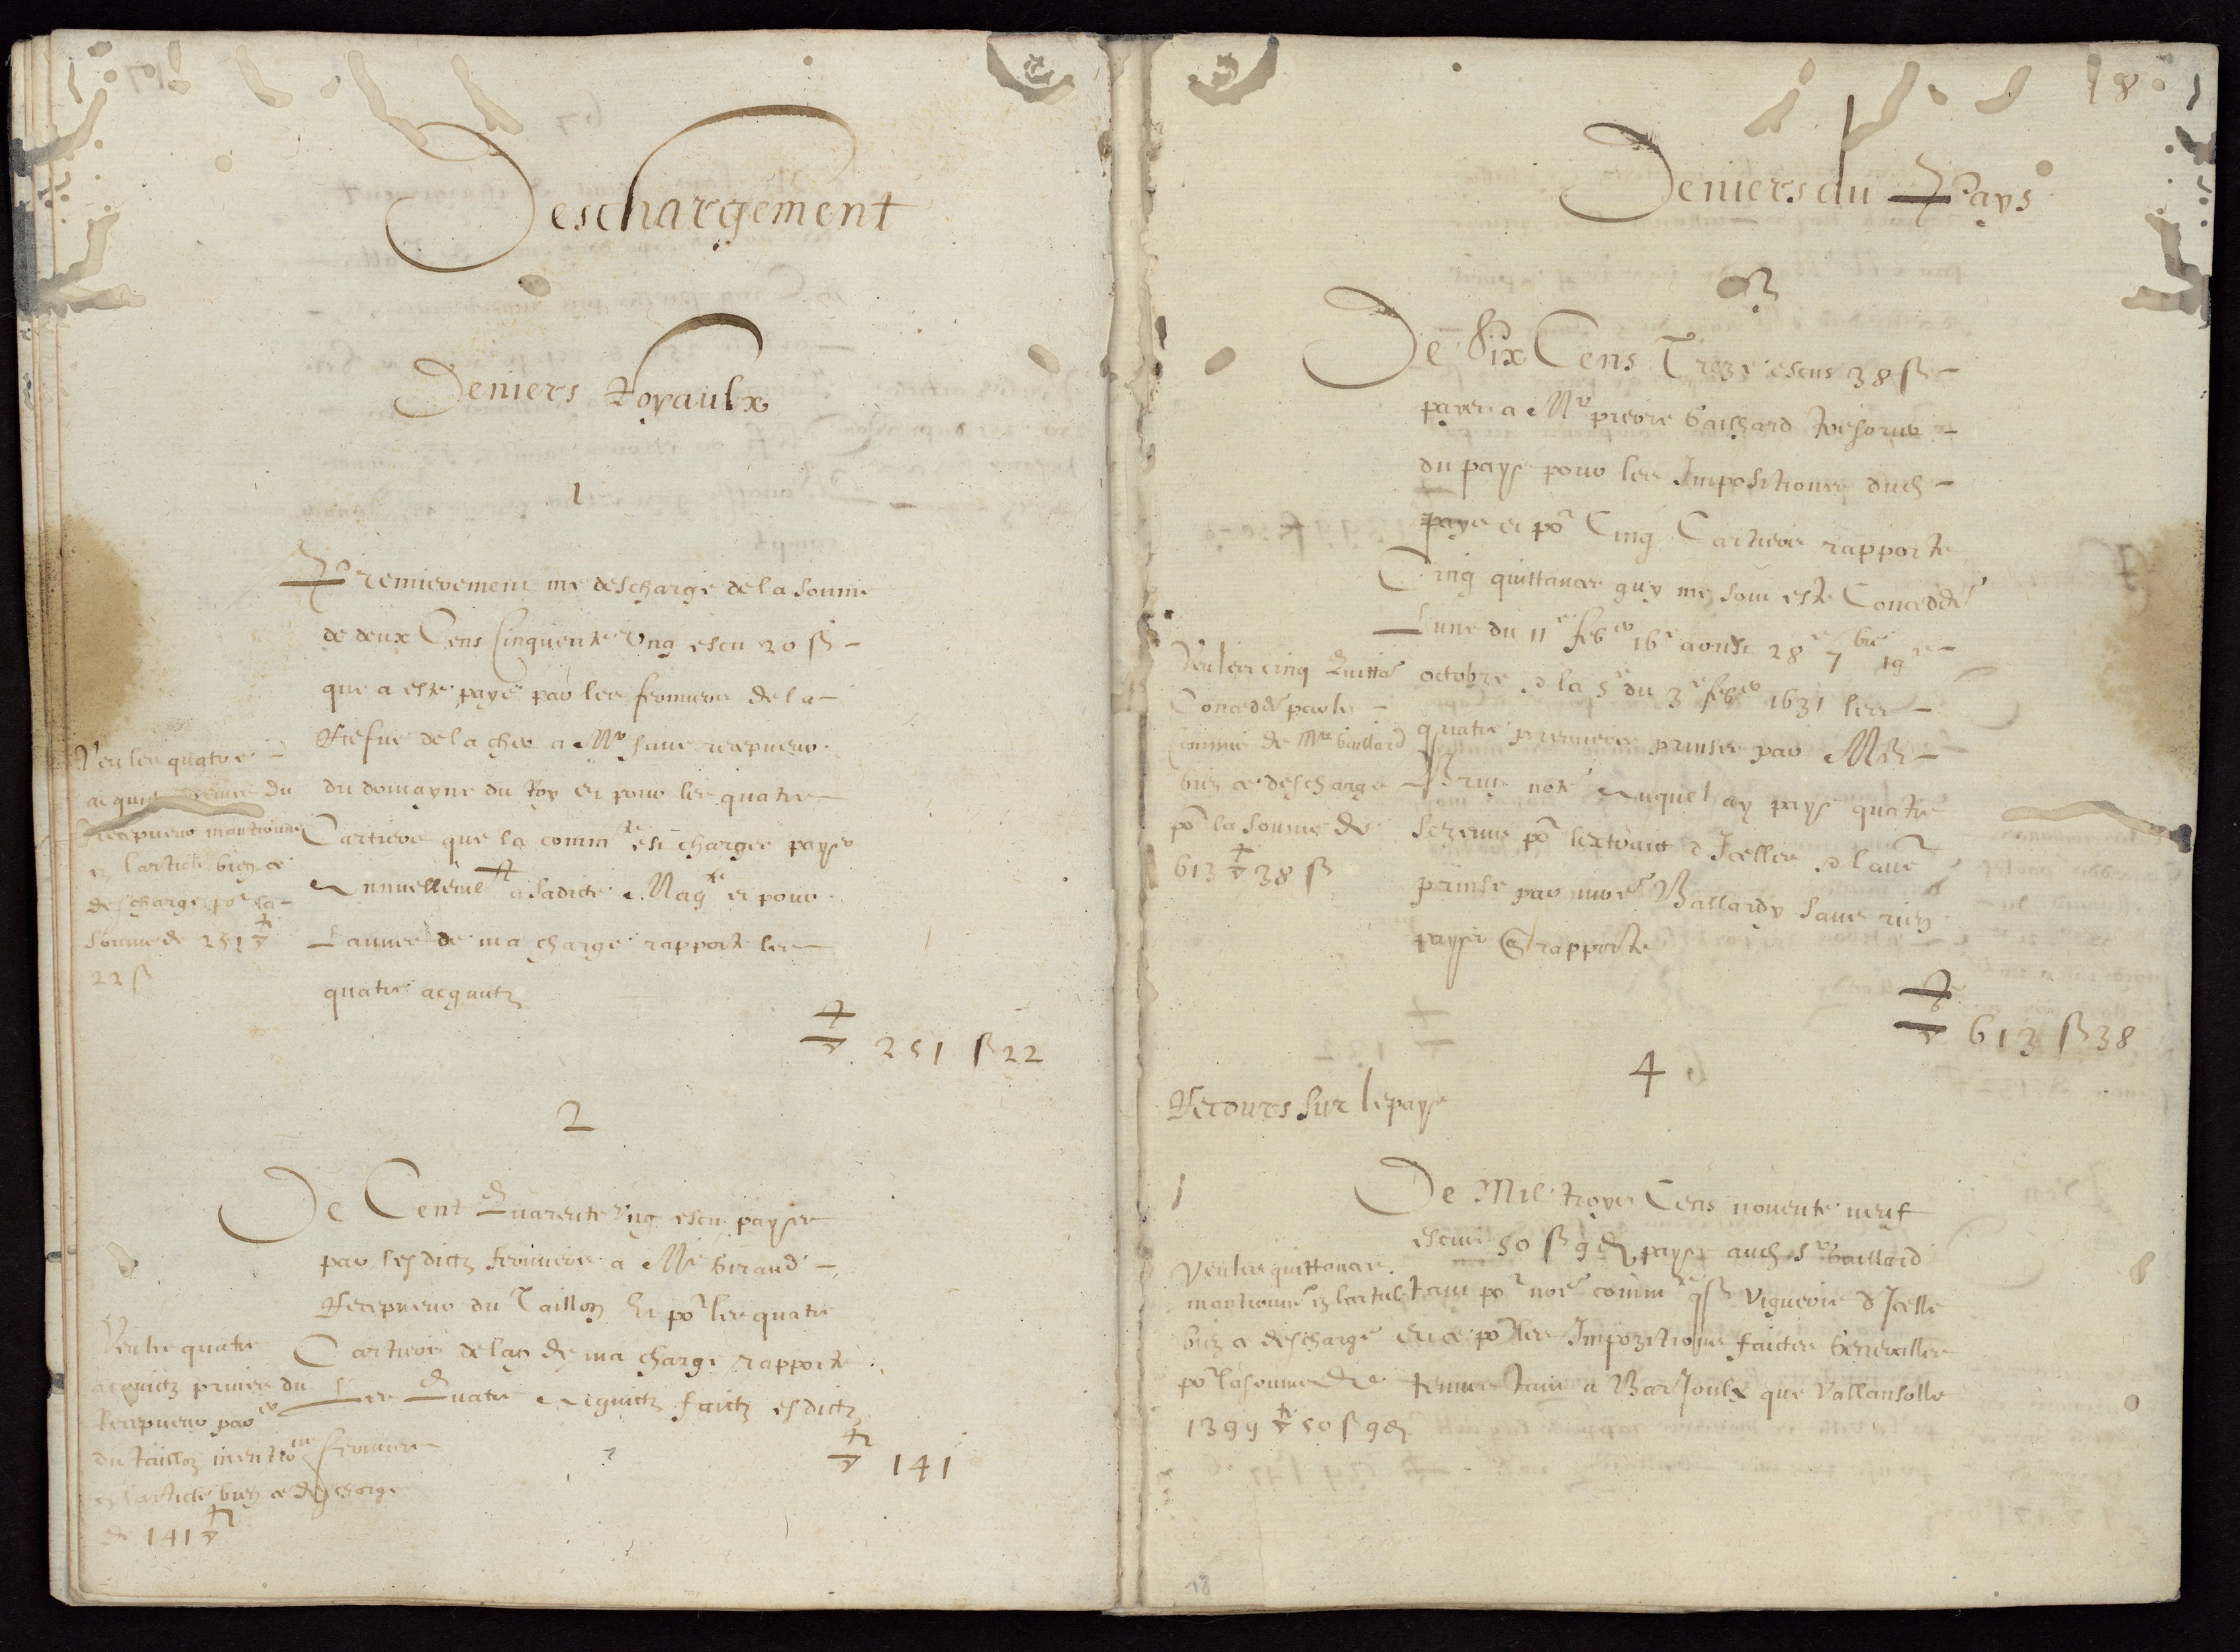 Deschargement
Deniers Royaulx
1
Premierement me descharge de la somme
de deux Cens Cinquente Ung escu 20 ß
que a esté payé par les fermiers de la
Resve de la cher a Mr recepveur
du domayne du Roy et pour les quatre
Cartiers que la commté est chargee payer
Annuellemt a sadicte Magté et pour
Lannee de ma charge rapporte les
quatre acquitz
251 ß 22
Veu les quatre
acquitz du
Recepveur mantionne
en larticle bien ce
descharge por la
somme de 251
22 ß
2
De Cent Quarente Ung escu payes
par lesdictz fermiers a Me Giraud
Recepveur du Taillon Et por les quatre
Cartiers de lan de ma charge rapporte
Les Quatre Aquictz faictz esdictz
fermiers
141
Veu les quatre
acquictz prinses du
Recepveur par
du taillon mentio
en larticle bien ce descharge
de 141
18
Deniers du Pays
3
De Six Cens Treze escus 38 ß
payes a Me pierre Gaillard Tresorier
du pays pour les Impositions dud
pays et por Cinq Cartiers rapporte
Cinq quittances quy men sont este Concedées
Lune du 11e feber 16e aoust 28e 7bre 19e
octobre & la 5e du 3e feber 1631 les
quatre premieres prinses par Me
Brun noté Auquel ay paye quatre
sezeins por lextraict d Icelles & lautre
prinse par moe Ballardy sans rien
payer Et rapporte
613 ß 38
Veu les cinq quittes
Concedes par le
Commis de Mre Gaillard
bien ce descharge
por la somme de
613 38 ß
4
Recours sur le pays
1
De Mil troys Cens nonente neuf
escus 50 ß 9 d payes aud Sr Gaillard
tant por noe commté Viguerie d Icelle
Et ce por les Impozitions faictes Generalles
tenues tant a Barjoulx que Vallansolle
Veu les quittances
mantionne en larticle
bien ce descharge
por la somme de
1399 50 ß 9 d
18